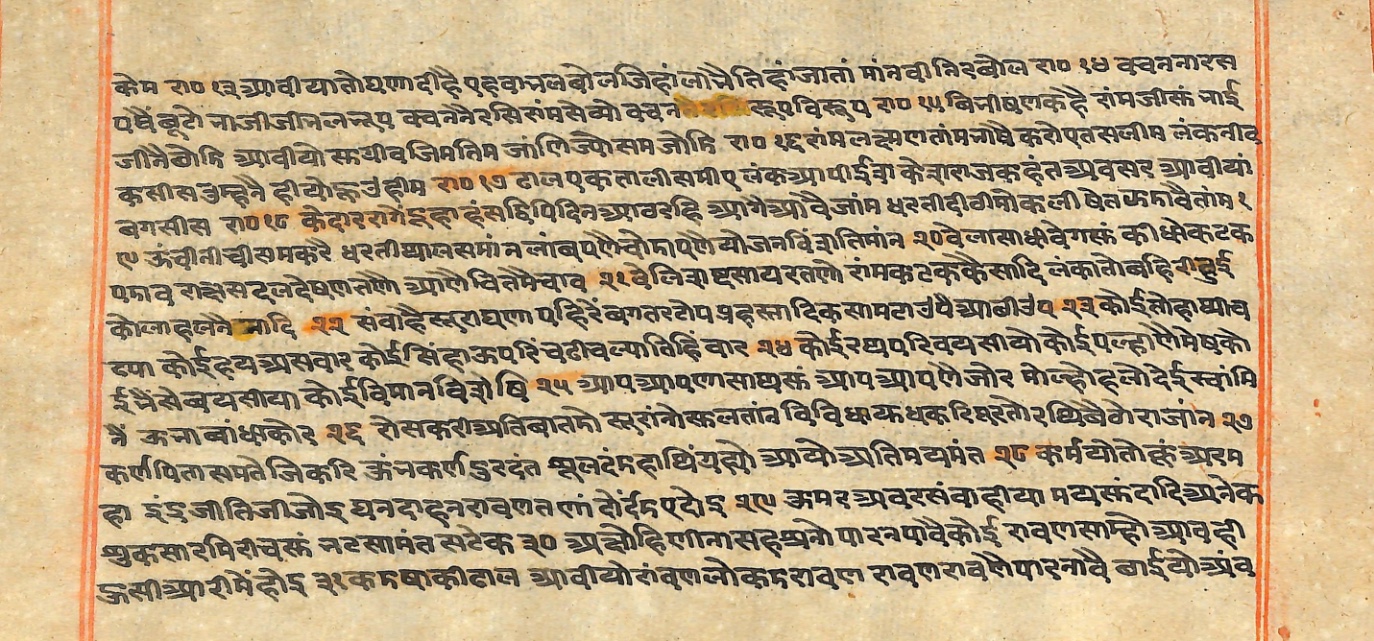 केम रा० १३ आवीयातोघणादीहै एहवानलबोलजिहांलानैतिहांजातां मांनवीनिरबोल रा० १४ वचननारस
पषैंबूटो नाजीजीनलनूप वचननैरसिसंमसेव्यो वचन रूपविरूप रा० १५ बिनीषणकहै रांमजीसुं नाई
जीनैषोमि आवीयो सुग्रीवजिमतिम जांणिज्यौसमजोमि रा० १६ रांमलक्ष्मणतांमनाषै करोएतसलीम लंकनीब
कसीसतुम्हनै हीयोकुंउंहीम रा० १७ ढालएकतालीसमीए लंकआपीईना केनाराजकहंतअवसर आवीयां
बगसीस रा० १८ केदाररागेइहा हंसदिपिदिनआवरहि आगेआवैजांम धरतीदीवीमोकली षेतफमावैतांम १
९ ऊंचीनीचीसमकरै धरतीथालसमांन लांबपणैचोमापणै योजनविंशतिमांन २०वेलासाधीवेगसुं कीधोकटक
पमाव राक्षसदलदेषणतणै आणैचितमैंचाव २१ वेलिनाष्टसायरतणो रांमकटककैसादि लंकातोबहिरीहुई
कोलाहलनैनादि २२ संवाहैसूराघणा पहिरैंबगतरटोप प्रहस्तादिकसामटाउपैआबीउप २३ कोईतोहाथीच
ढ्या कोईहयअसवार कोईसिंहाऊपरिंचढीचल्यातिहिंवार २४ कोईरथपरिवयसायो कोईपल्हाणैमेषको
ईभैंसेबयसीया कोईविमानविशेषि २५ आपआपणासाथसुं आपआपणैजोर मोल्होहलोदेईस्वांमि
नैं ऊनाबांधाकोर २६ रोसकरीअतिवातमो सूरांनोसुलतांन विविधायुधकरिधरतो रथिबैठोराजांन २७
कर्णपितासमतेजिकरि ऊंनकर्णडुरदंत शूलदंमहाथिंग्रह्यो आयोअतिमयमंत २८ कर्मयोतोकुंअरम
हा इंद्रजीतिजीजोइ घनदाहनरावणतणां दोर्दंमएदोइ २९ ऊमरअवरसंवाहीया मयसुंदादिअनेक
शुकसारमिरीचसुं नटसामंतसटेक ३० अक्षोहिणीनासहश्रनो पारनपावैकोई रावणसाम्होआवही
ऊसीआरीमेंहोइ ३१ कमषाकीढाल आवीयोरांवणलोकमरावण रावणरावणैपारनावै बाईयोअंब